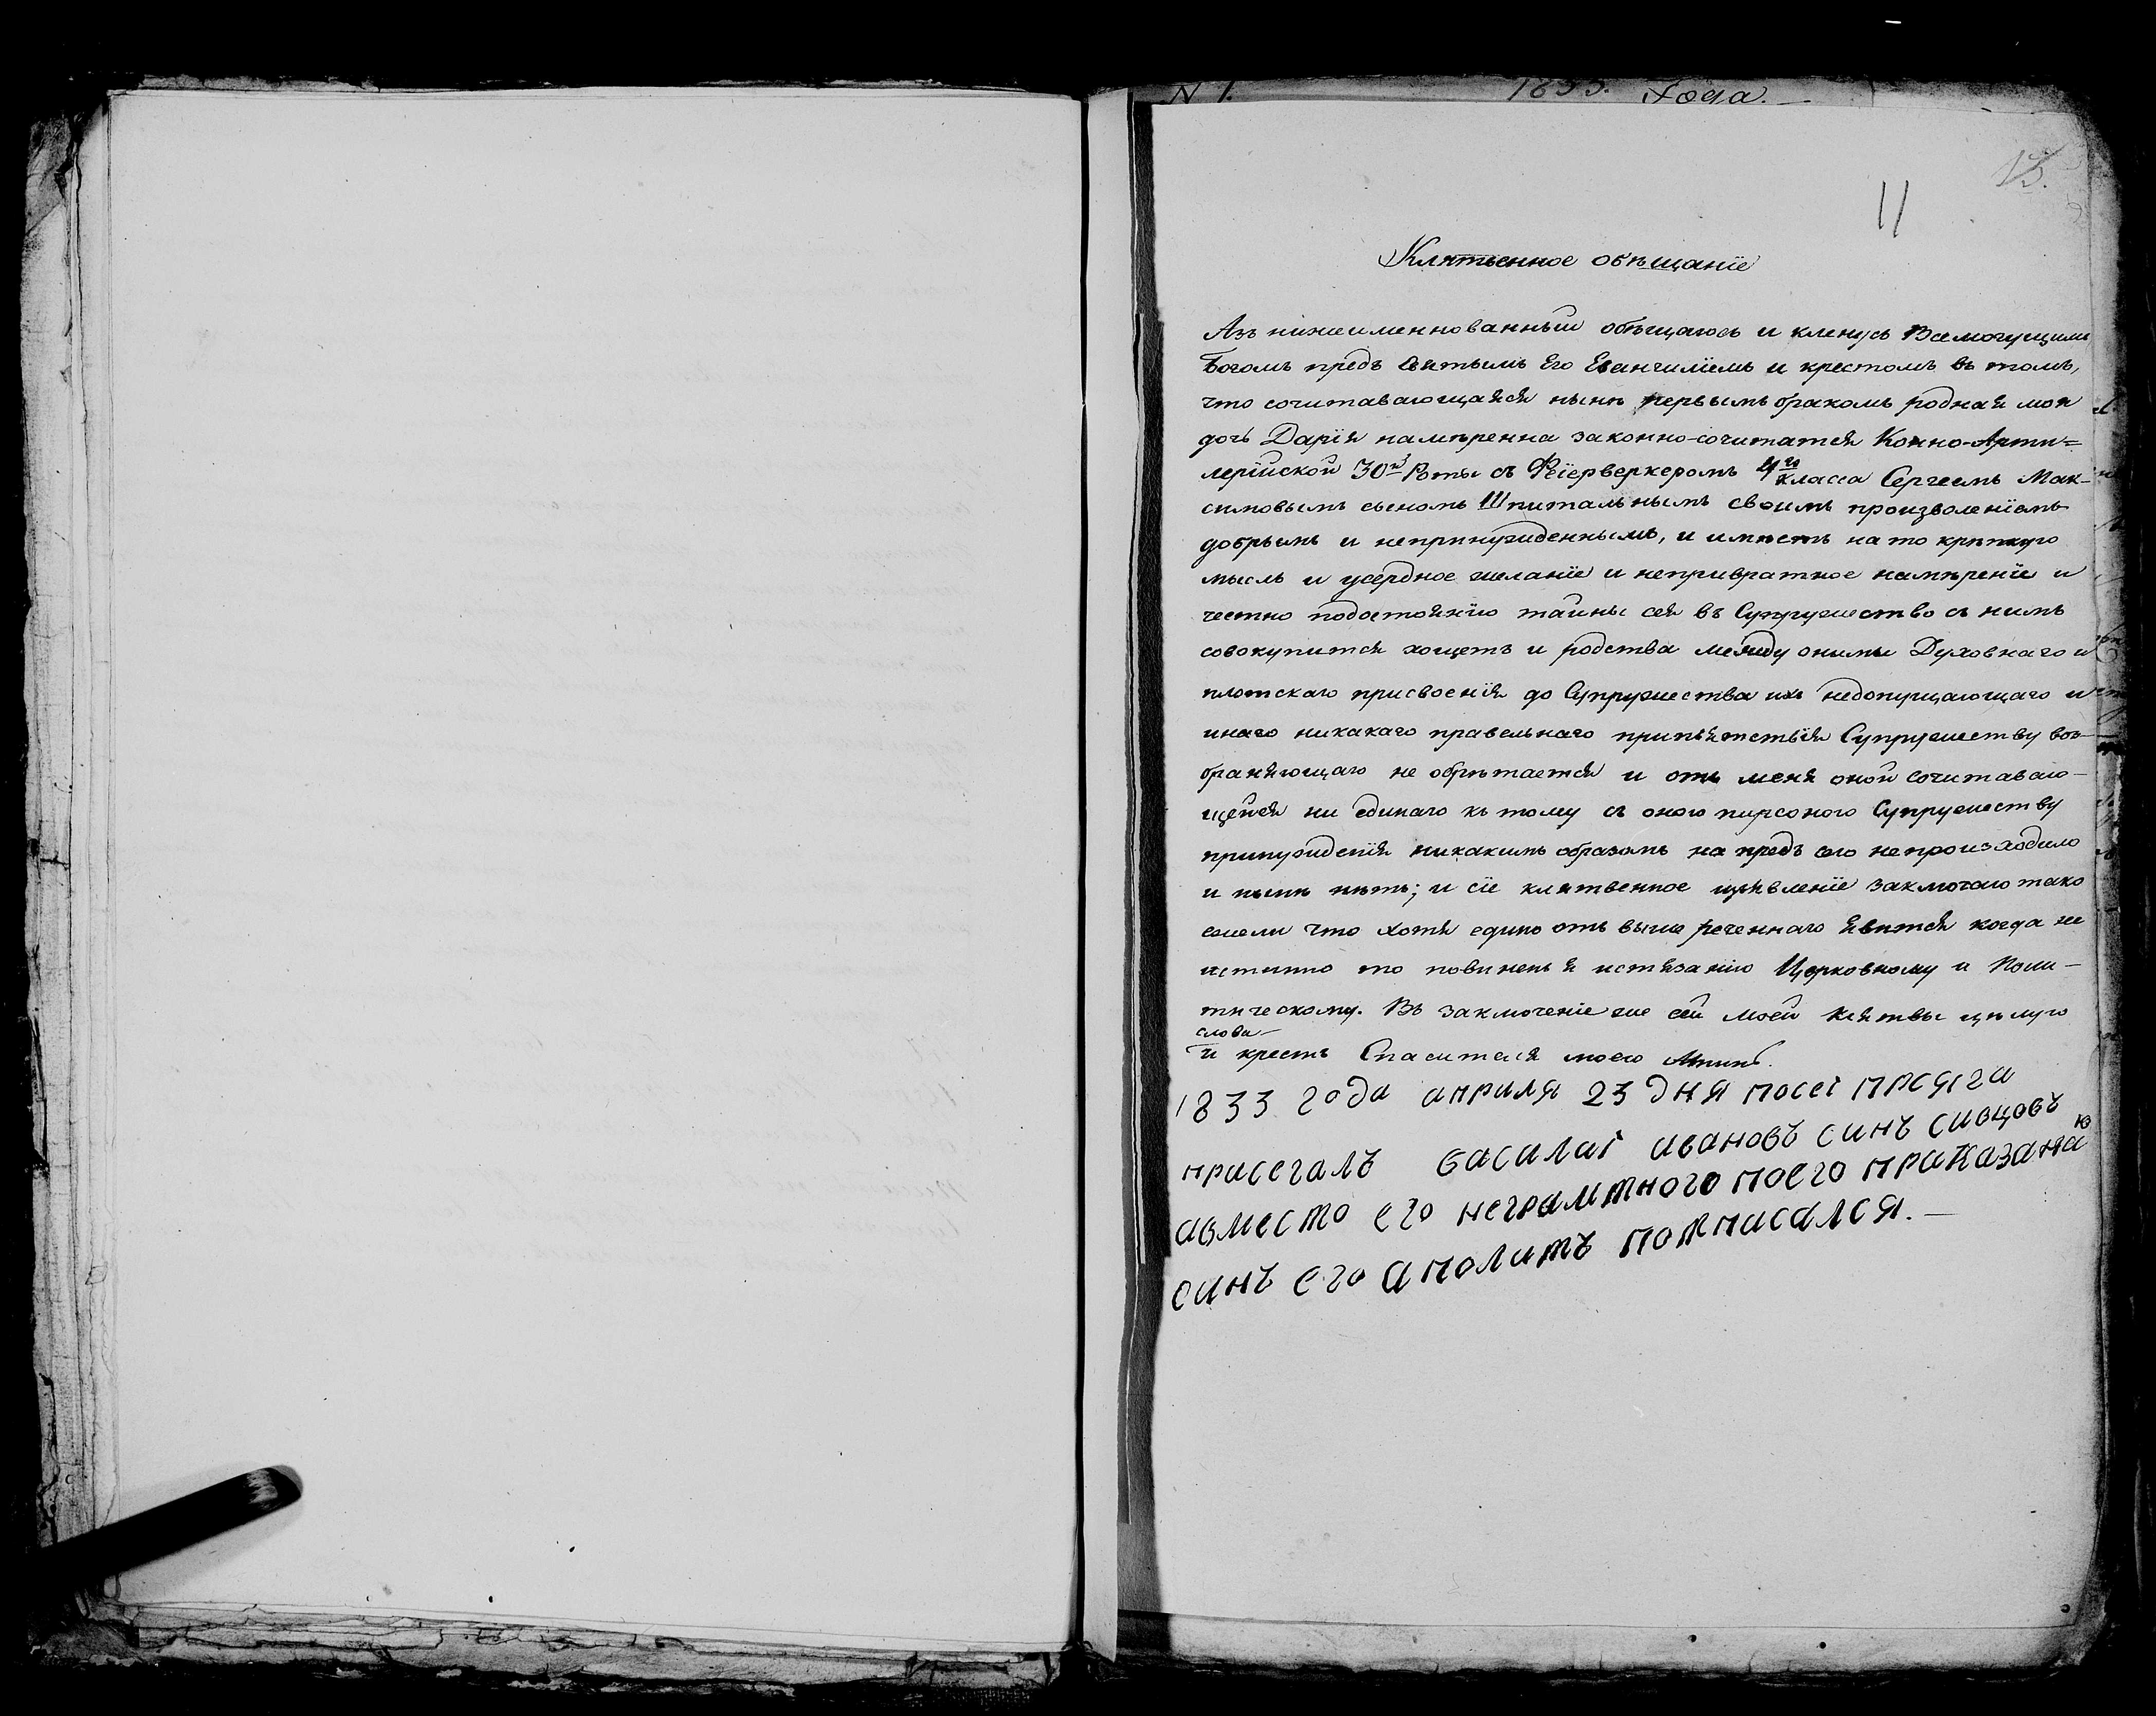 N 1. 1833. Года.
15.
11
Клятвенное обѣщанїе
Азъ нижеименнованный обѣщаюсь и кленусь Всемогущимъ
Богомъ предъ Святымъ Его Евангилїемъ и крестомъ въ томъ,
что сочитавающаяся нынѣ первымъ бракомъ родная моя
дочь Дарїя намѣренна законно-сочитатся Конно-Арти=
лерїйской 30й Роты съ Феїерверкеромъ 4го класса Сергеемъ Мак-
симовымъ сыномъ Шпитальнымъ своимъ произволенїемъ
добрымъ и непринужденнымъ, и имѣетъ на то крѣпкую
мысль и усердное желанїе и непривратное намѣренїе и
честно подостоянїю тайны сея въ Супружество съ нимъ
совокупится хощетъ и родства между оными Духовнаго и
плотскаго присвоенїя до Супружества ихъ недопущающаго и
инаго никакаго правельнаго припятствїя Супружеству воз-
браняющаго не обрѣтается и отъ меня оной сочитаваю-
щейся ни единаго къ тому съ оного пирсоного Супружеству
принужденїя никакимъ образомъ на предъ сего непроизходило
и нынѣ нѣтъ; и сїе клятвенное изъявленїе заключаю тако
ежели что хотя едино отъ выше реченнаго явится когда не
истинно то повиненъ я истязанїю Церковному и Поли-
тическому. Въ заключенїе же сей моей Клятвы цѣлую
слова
и крестъ Спасителя моего Аминь.
1833 года априля 23 дня посеі присяга
присегалъ василиі ивановъ синъ сивцовъ
ивместо его неграмтного поего приказаняю
синъ его иполитъ потписался.-